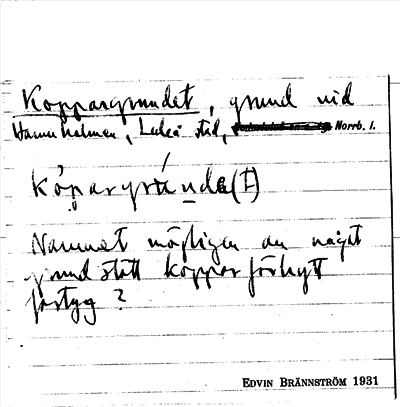 Koppargrundet, grund vid
Hamnholmen, Luleå stad, Norrb. l.
kópargrúnde(t)
Namnet möjligen av något
grundstött kopparförhytt
fartyg?
EDVIN BRÄNNSTRÖM 1931